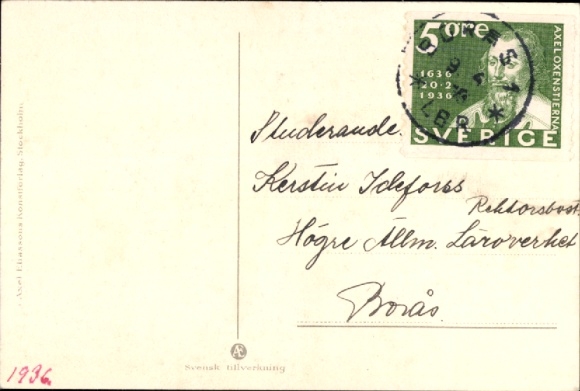 5 ÖRE
AXEL OXENSTIERNA
1636
20·2
1936
SVERIGE
BORÅS 1
LBR
Studerande.
Kerstin Ideforss
Rektorsbost.
Högre Allm. Läroverket
Borås
Axel Eliassons Konstförlag, Stockholm
AE
Svensk tillverkning
1936.